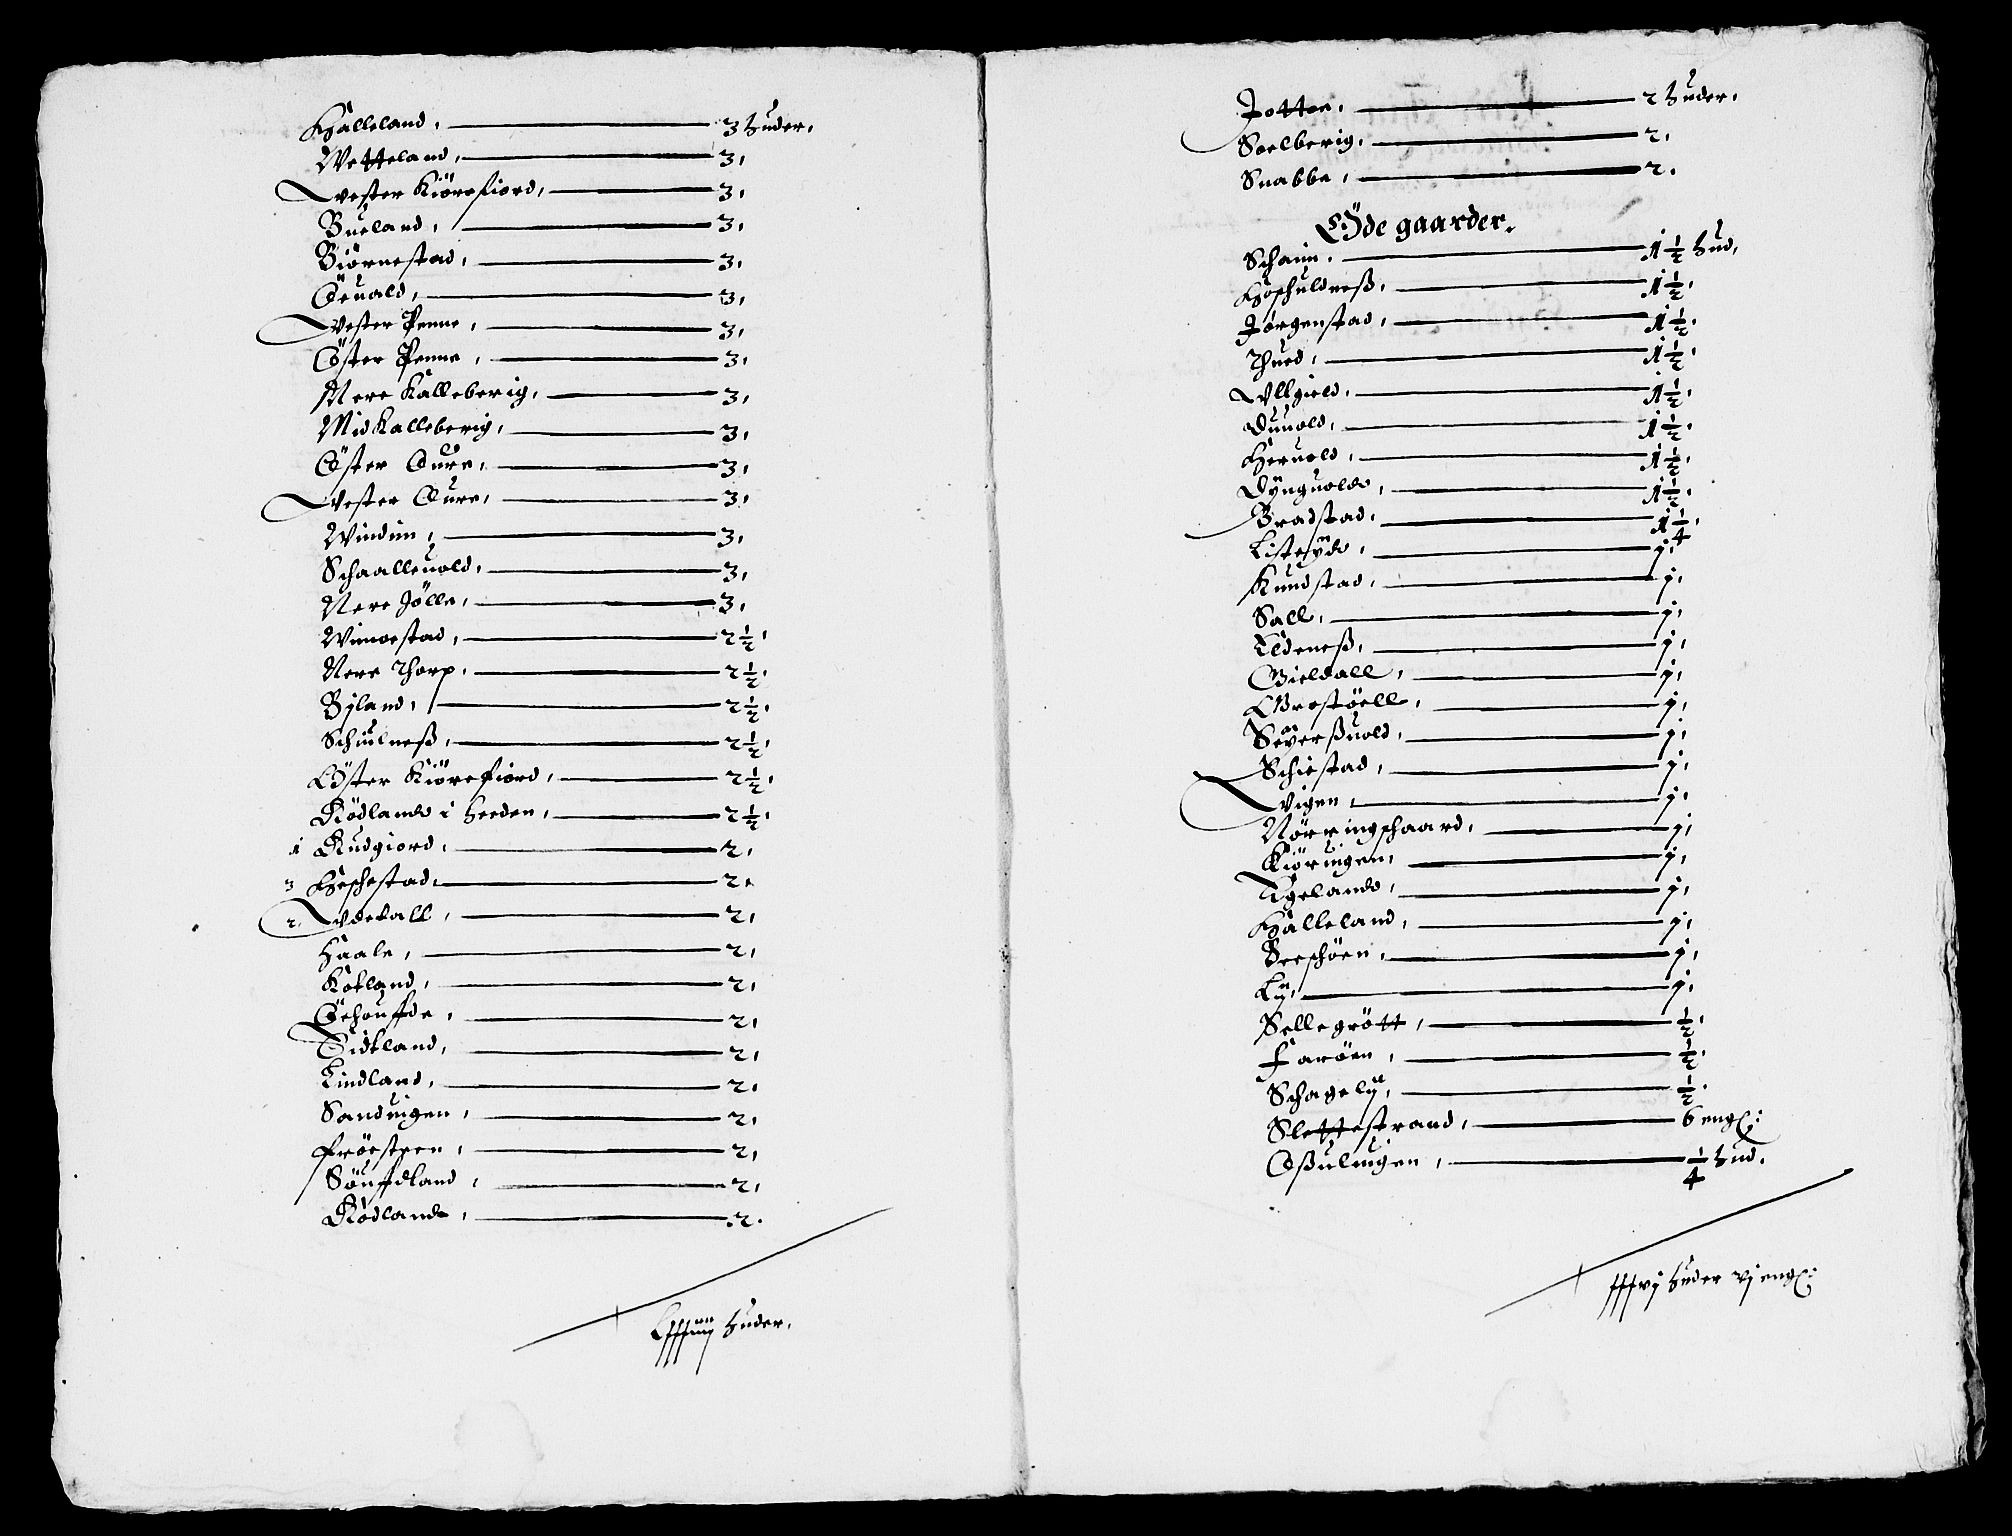 Halleland, 3 huder,
Wetteland, 3,
Vester Kiörefiord, 3,
Bueland, 3,
Biörnestad, 3,
Öeuald, 3,
Vester Penne, 3,
Öster Penne, 3,
Nere Kalleberig, 3,
Mid Kalleberig, 3,
Öster Öure, 3,
Vester Öure, 3,
Windim, 3,
Schaalleuold, 3,
Nere Jölle, 3,
Wimestad, 2 1/2,
Nere Thorp, 2 1/2,
Byland, 2 1/2,
Schiulneß, 2 1/2,
Öster Kiörefiord, 2 1/2,
Rödland i heeden, 2 1/2,
1 Rudgiord, 2,
3 Heschestad, 2,
2. Vdedall, 2,
Haale, 2,
Kötland, 2,
Öehouffde, 2,
Sidtland, 2,
Lindland, 2,
Sanduigen, 2,
Fröesteen, 2,
Söuffdland, 2,
Rödland, 2.
Lxxxiiij huder,
Jotten, 2 huder,
Soelberig, 2,
Snabbe, 2.
Öde gaarder.
Schaim, 1 1/2 hud,
Hoschuldneß, 1 1/2,
Jörgenstad, 1 1/2,
Thued, 1 1/2,
Vllgield, 1 1/2,
Duuold, 1 1/2,
Heruold, 1 1/2,
Dynguold, 1 1/2,
Bradstad, 1 1/4,
Listeyd, j,
Kundstad, j,
Sall, j,
Eldeneß, j,
Gieldall, j,
Offrestöell, j,
Seyerßuold, j,
Schiestad, j,
Vigen, j,
Nörringschaard, j,
Kiöruigen, j,
Egeland, j,
Halleland, j,
Breschöen, j,
Ly, j,
Sellegrött, 1/2,
Faröen, 1/2,
Schagely, 1/2.
Slettestrand, 6 eng:
Oßuluigen, 1/4 hud.
xxxvj huder vj eng: